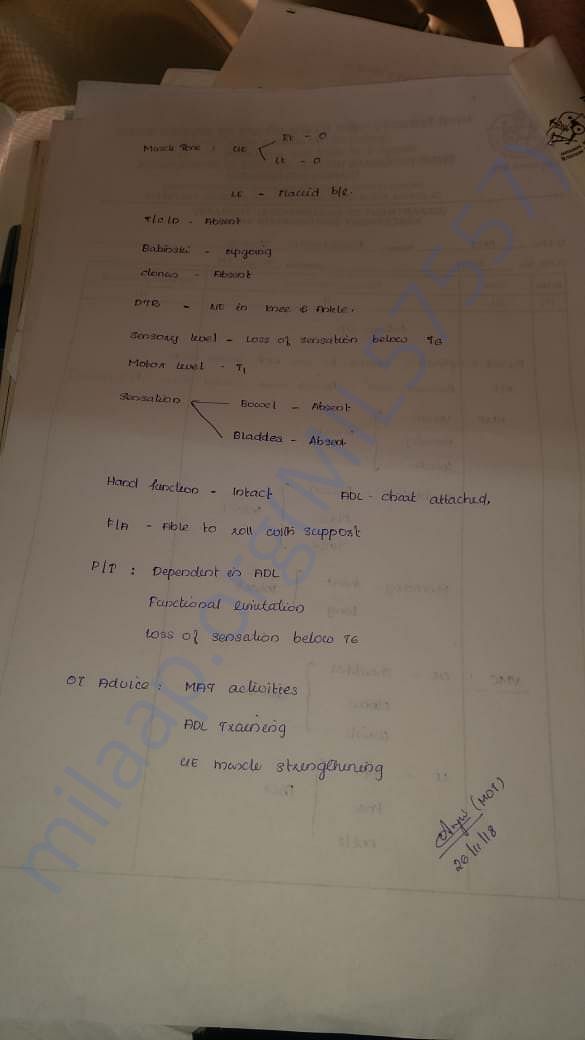 Muscle Tone : UE < Rt - 0
Lt - 0
LE - Flaccid b/e.
Babinski - upgoing
clonus - Absent
DTR - NE in knee & Ankle.
Sensory level - Loss of sensation below T6
Motor level - T1
Sensation Bowel - Absent
Bladder - Absent
Hand function - Intact ADL - chart attached.
F/A - Able to roll with support
P/P : Dependent in ADL
Functional limitation
Loss of sensation below T6
OT Advice : MAT activities
ADL Training
UE muscle strengthening
(MOT)
20/11/18
milaap.org(MIL57557)